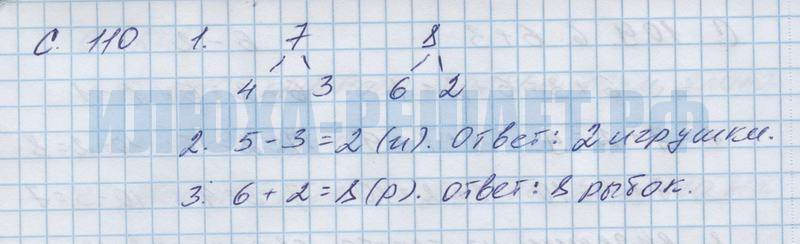 С. 110 1. 7 8
4 3 6 2
2. 5 - 3 = 2 (и). Ответ: 2 игрушки.
3. 6 + 2 = 8 (р). Ответ: 8 рыбок.
ИЛЮХА-РЕШАЕТ.РФ